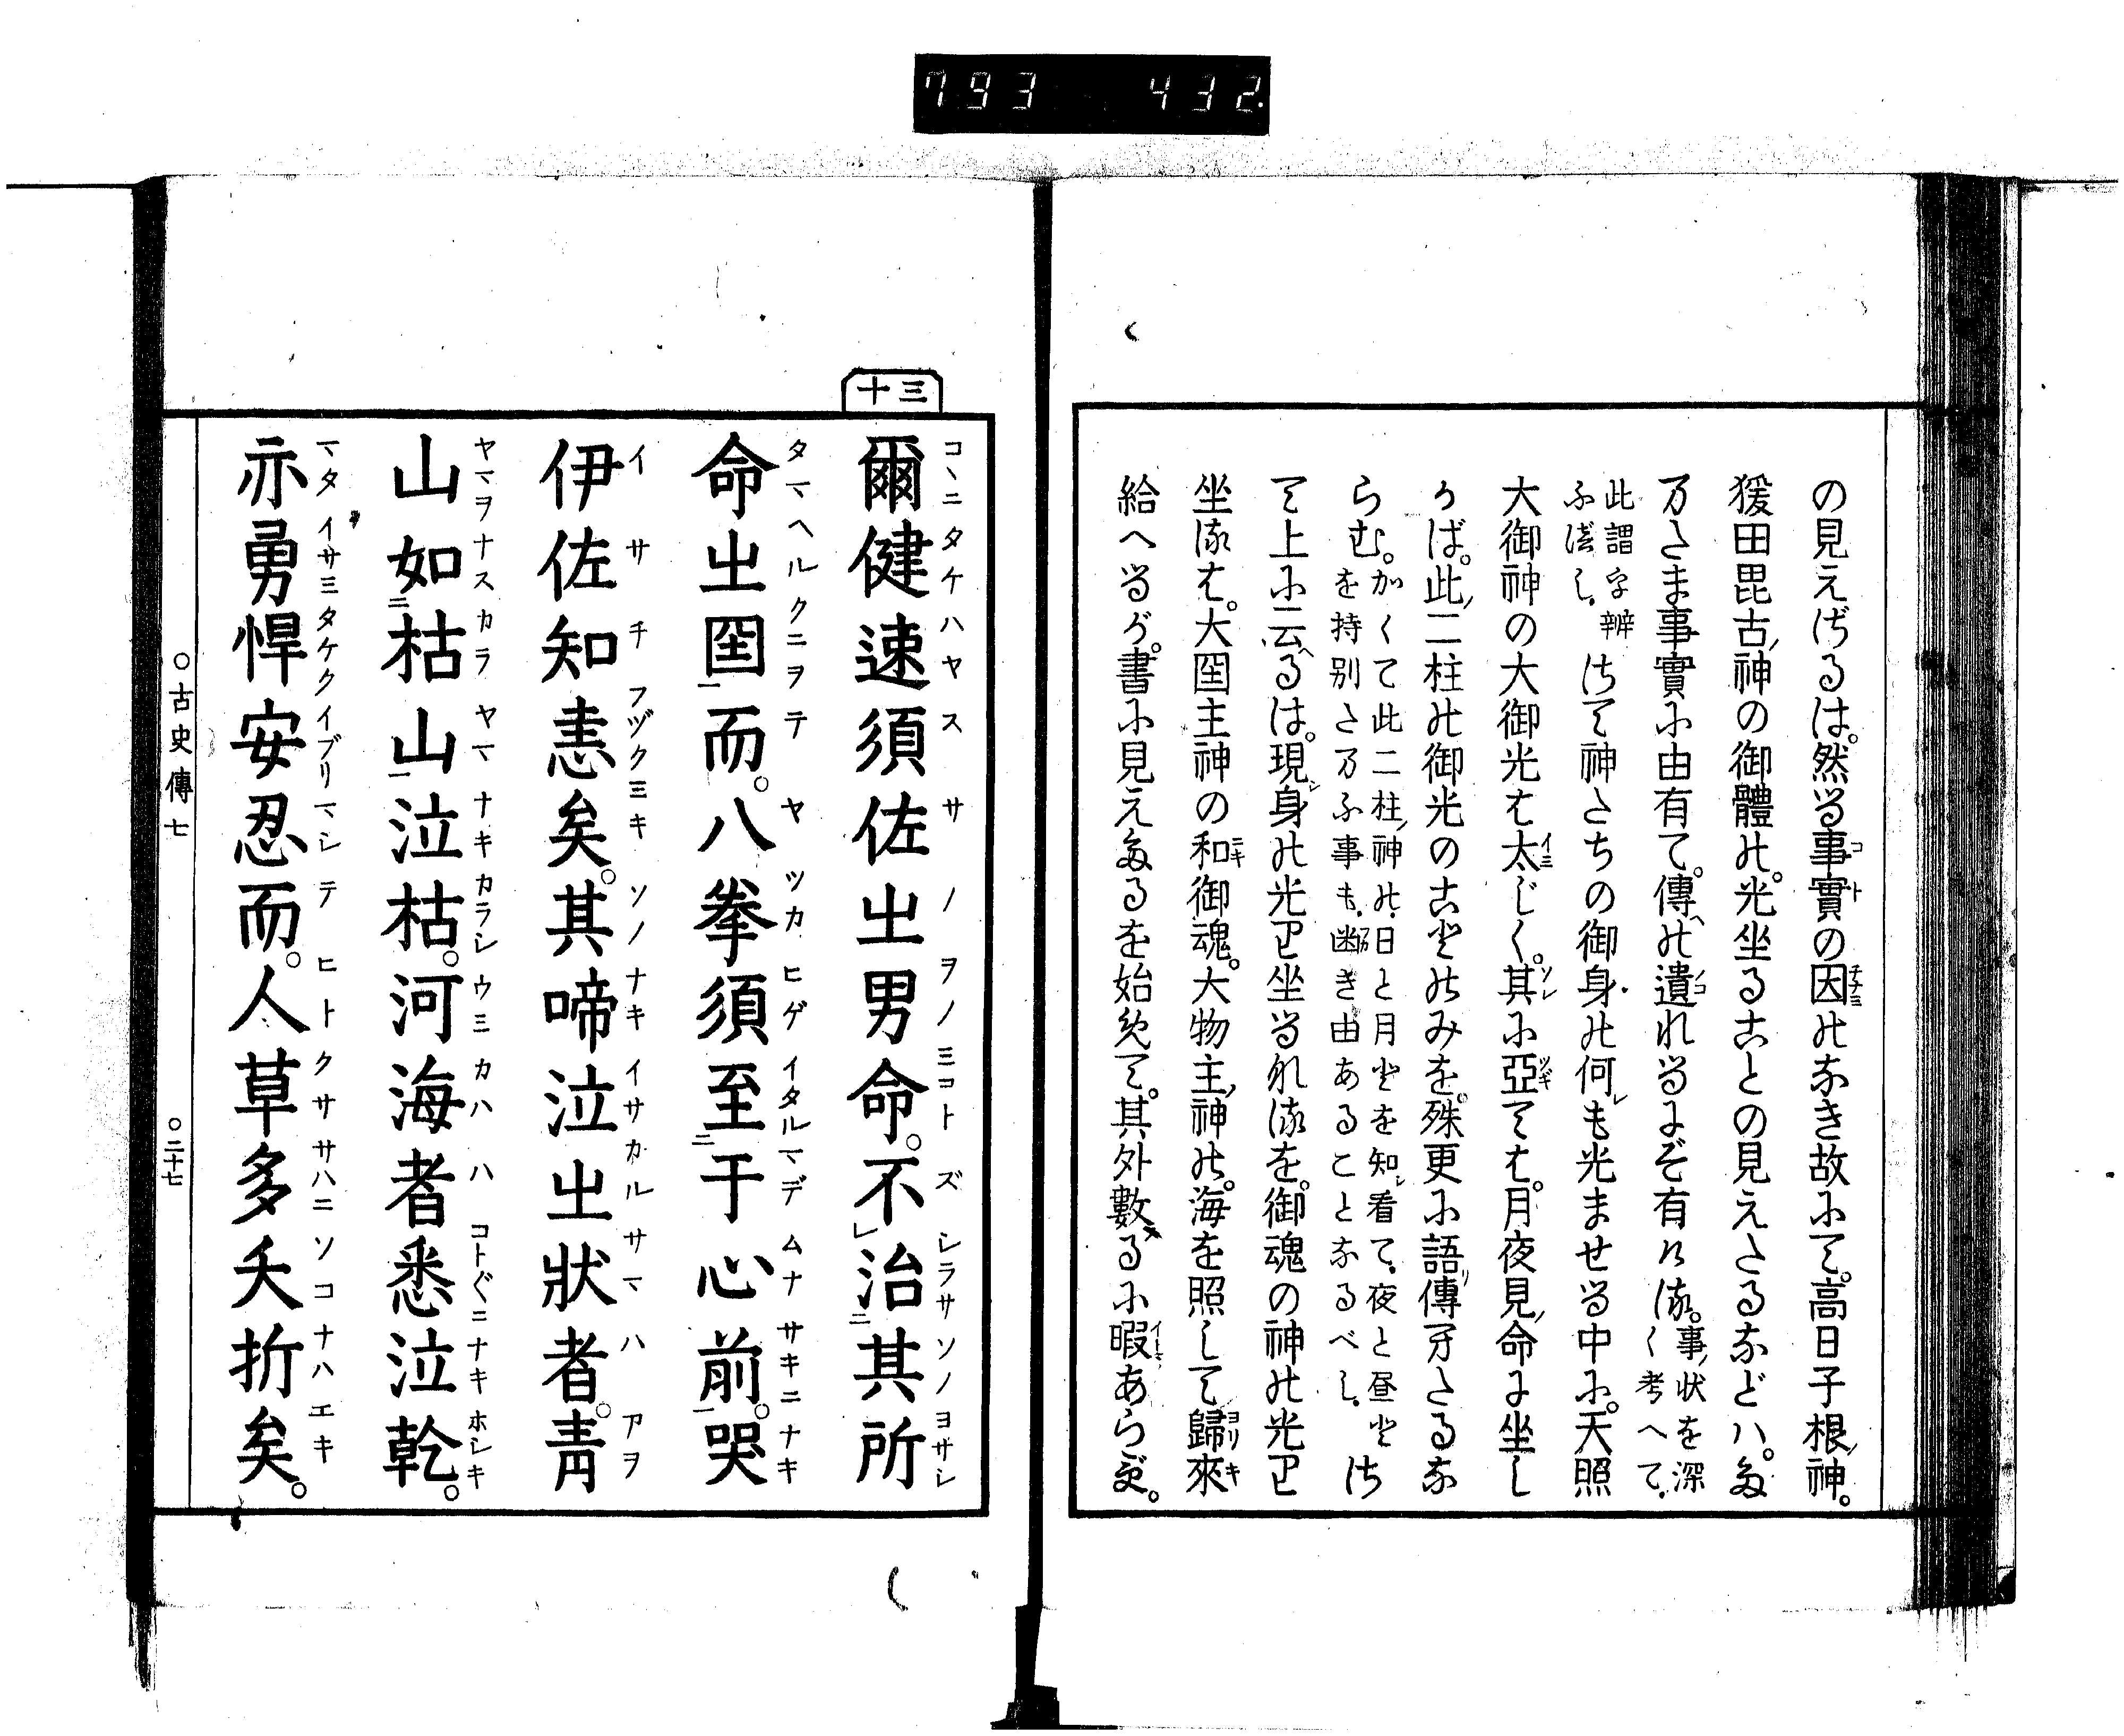 793 432
の見えざるは。然る事實の因のなき故にて。高日子根ノ神。
猨田毘古ノ神の御體の。光坐ることの見えたるなどハ。た
またま事實に由有て。傳への遺れるにぞ有ける。事ノ狀を深く考へて。
此謂字辨ふべし。さて神たちの御身の何レも光ませる中に。天照
大御神の大御光は太じく。其に亞ては。月夜見ノ命に坐し
かば。此ノ二柱の御光のことのみを。殊更に語リ傳またるな
らむ。かくて此二柱ノ神の。日と月とを知レ看て。夜と昼とを持別たまふ事も。幽き由あることなるべし。さ
て上に云へるは。現シ身の光り坐るなるを。御魂の神の光り
坐るは。大国主神の和御魂。大物主ノ神の。海を照して歸來
給へるが。書に見えたるを始めて。其外數るに暇あらず。
三十
爾健速須佐之男命。不治其所
命之国而。八拳須至于心前。哭
伊佐知恚矣。其啼泣之狀者。青
山如枯山泣枯。河海者悉泣乾。
亦勇悍安忍而。人草多夭折矣。
○古史傳七 ○二十七